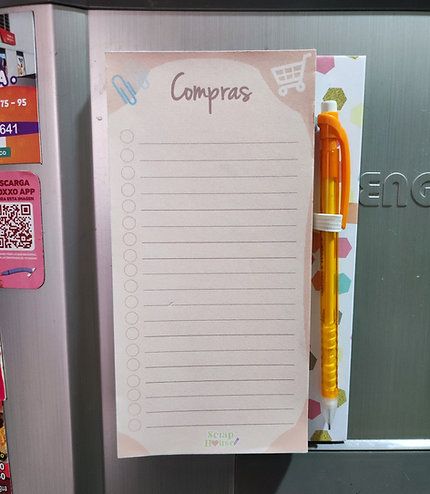 Compras
Scrap
House
A.
75 - 95
641
co
SCARGA
OXXO APP
ENG